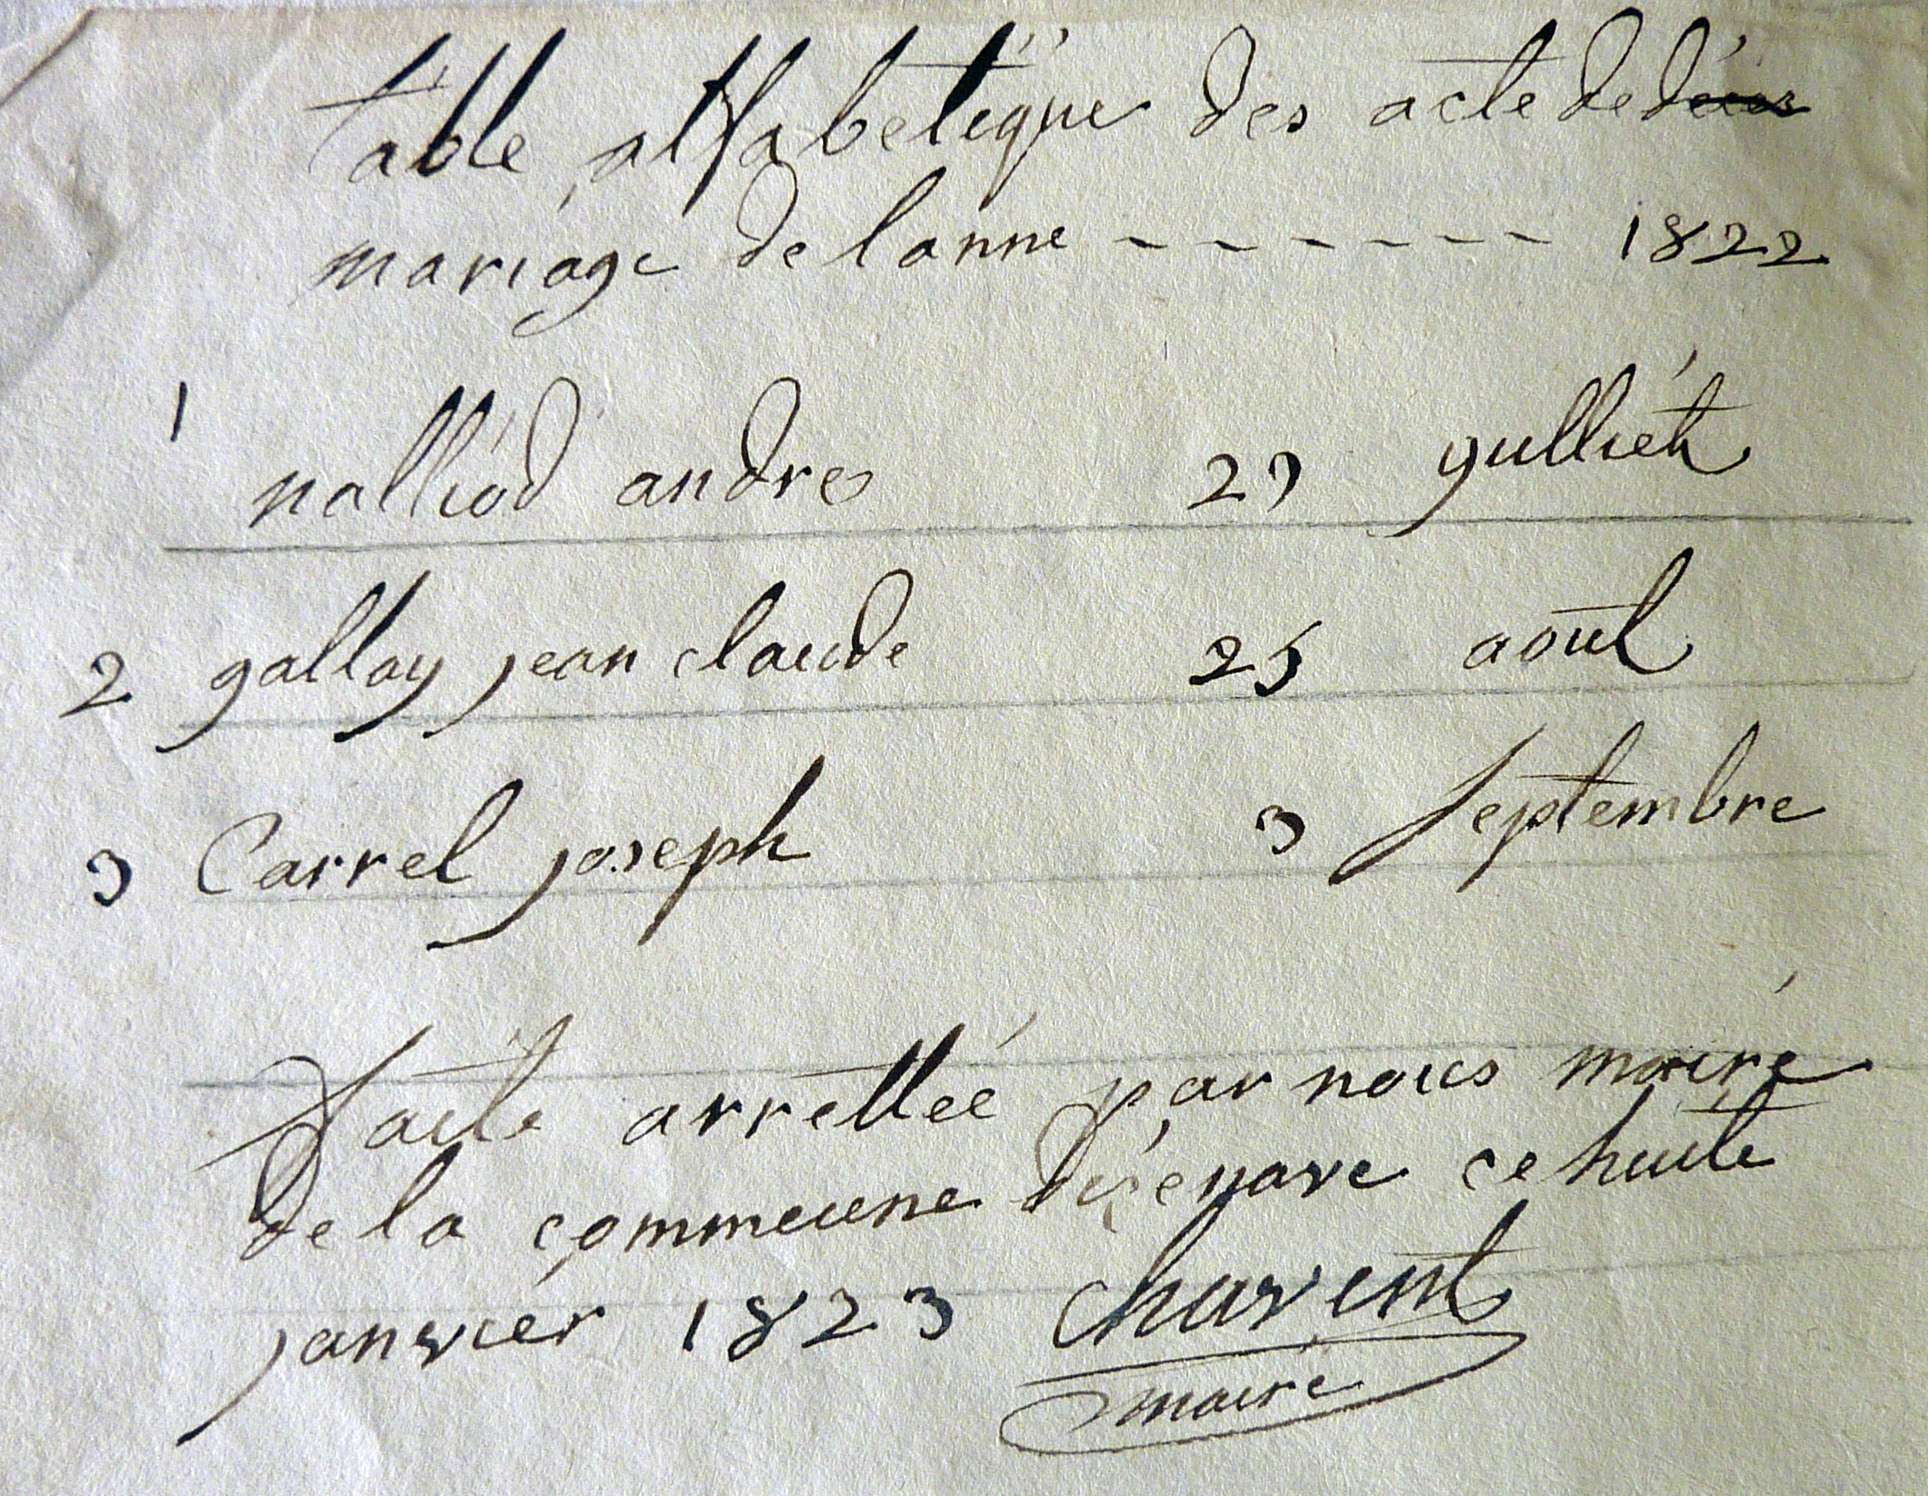 table alfabetique des acte de déces
mariage de lanne - - - - - - 1822
1 nalliod andre 23 gulliét
2 gallay jean claude 25 août
3 Carrel joseph 3 septembre
faite arrettée par nous maire
de la commune ce huite
janvier 1823 Charvent
maire